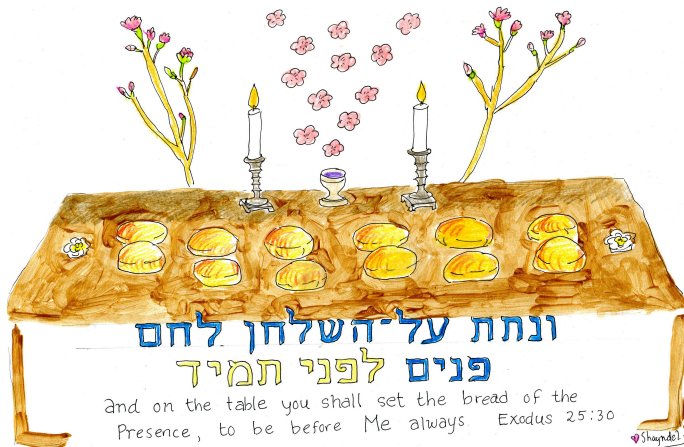 ונתת על־השלחן לחם
פנים לפני תמיד
and on the table you shall set the bread of the
Presence, to be before Me always Exodus 25:30